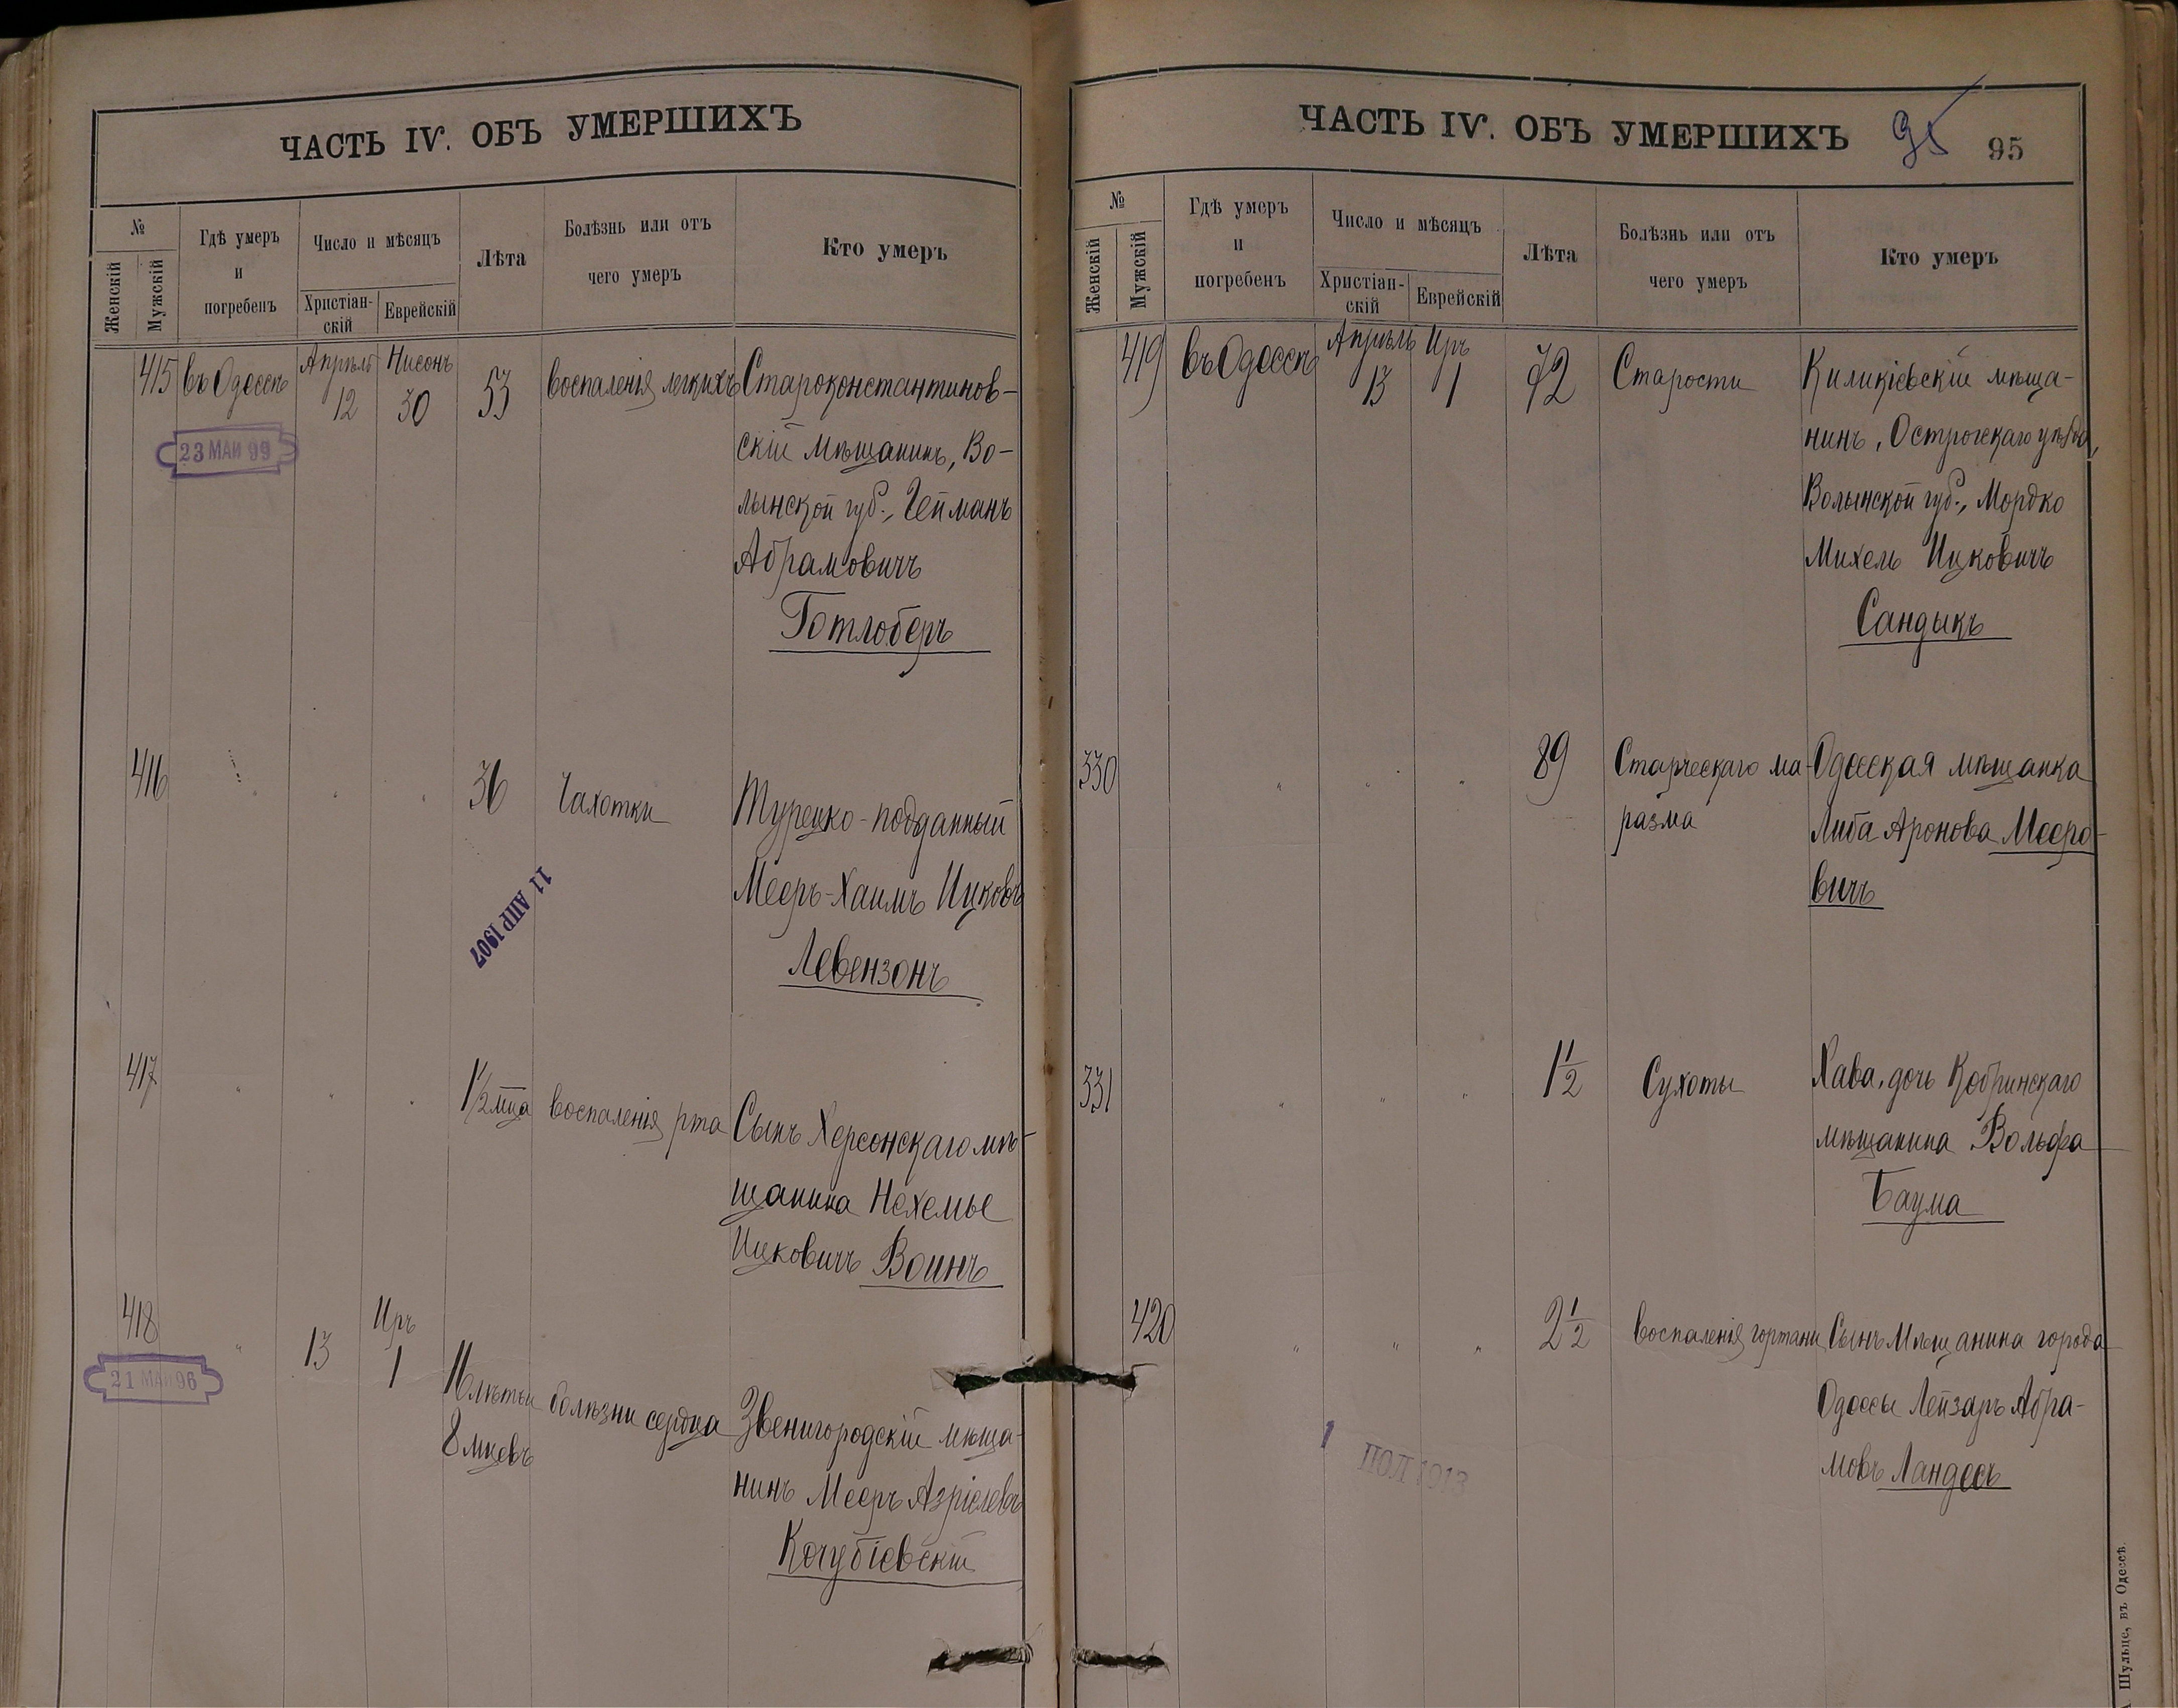 ЧАСТЬ IV. ОБЪ УМЕРШИХЪ
№
Женскій
Мужскій
Гдѣ умеръ
и
погребенъ
Число и мѣсяцъ
Христіан-
скій
Еврейскій
Лѣта
Болѣзнь или отъ
чего умеръ
Кто умеръ
415 въ Одессѣ Апрѣль 12 Нисонъ 30 53 воспаленія легкихъ Староконстантинов-
скій мѣщанинъ, Во-
лынской губ., Гейманъ
Абрамовичъ
Готлоберъ
23 МАИ 99
416 " " " 36 Чахотки Турецко-подданный
Мееръ-Хаимъ Ицковъ
Левензонъ
11 АПР 1907
417 " " " 1 1/2 мца воспаленія рта Сынъ Херсонскаго мѣ-
щанина Нехемье
Ицковичъ Воинъ
418 " 13 Иръ 1 16 лѣтъ и
8 мцевъ
болѣзни сердца Звенигородскій мѣща-
нинъ Мееръ Азріелевъ
Кочубіевскій
21 МАИ 96
ЧАСТЬ IV. ОБЪ УМЕРШИХЪ 95 95
№
Женскій
Мужскій
Гдѣ умеръ
и
погребенъ
Число и мѣсяцъ
Христіан-
скій
Еврейскій
Лѣта
Болѣзнь или отъ
чего умеръ
Кто умеръ
419 въ Одессѣ Апрѣль 13 Иръ 1 72 Старости Киликіевскій мѣща-
нинъ, Острогскаго уѣзда,
Волынской губ., Мордко
Михель Ицковичъ
Сандыкъ
330 " " " 89 Старческаго ма-
разма
Одесская мѣщанка
Либа Аронова Мееро-
вичъ
331 " " " 1 1/2 Сухоты Хава, дочь Кобринскаго
мѣщанина Вольфа
Баума
420 " " " 2 1/2 воспаленія гортани Сынъ Мѣщанина города
Одессы Лейзаръ Абра-
мовъ Ландесъ
1 ІЮЛ 1913
Шульце, въ Одессѣ.